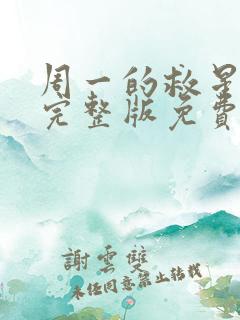 周一的救星
完整版免费
謝雲雙
未经同意禁止转载